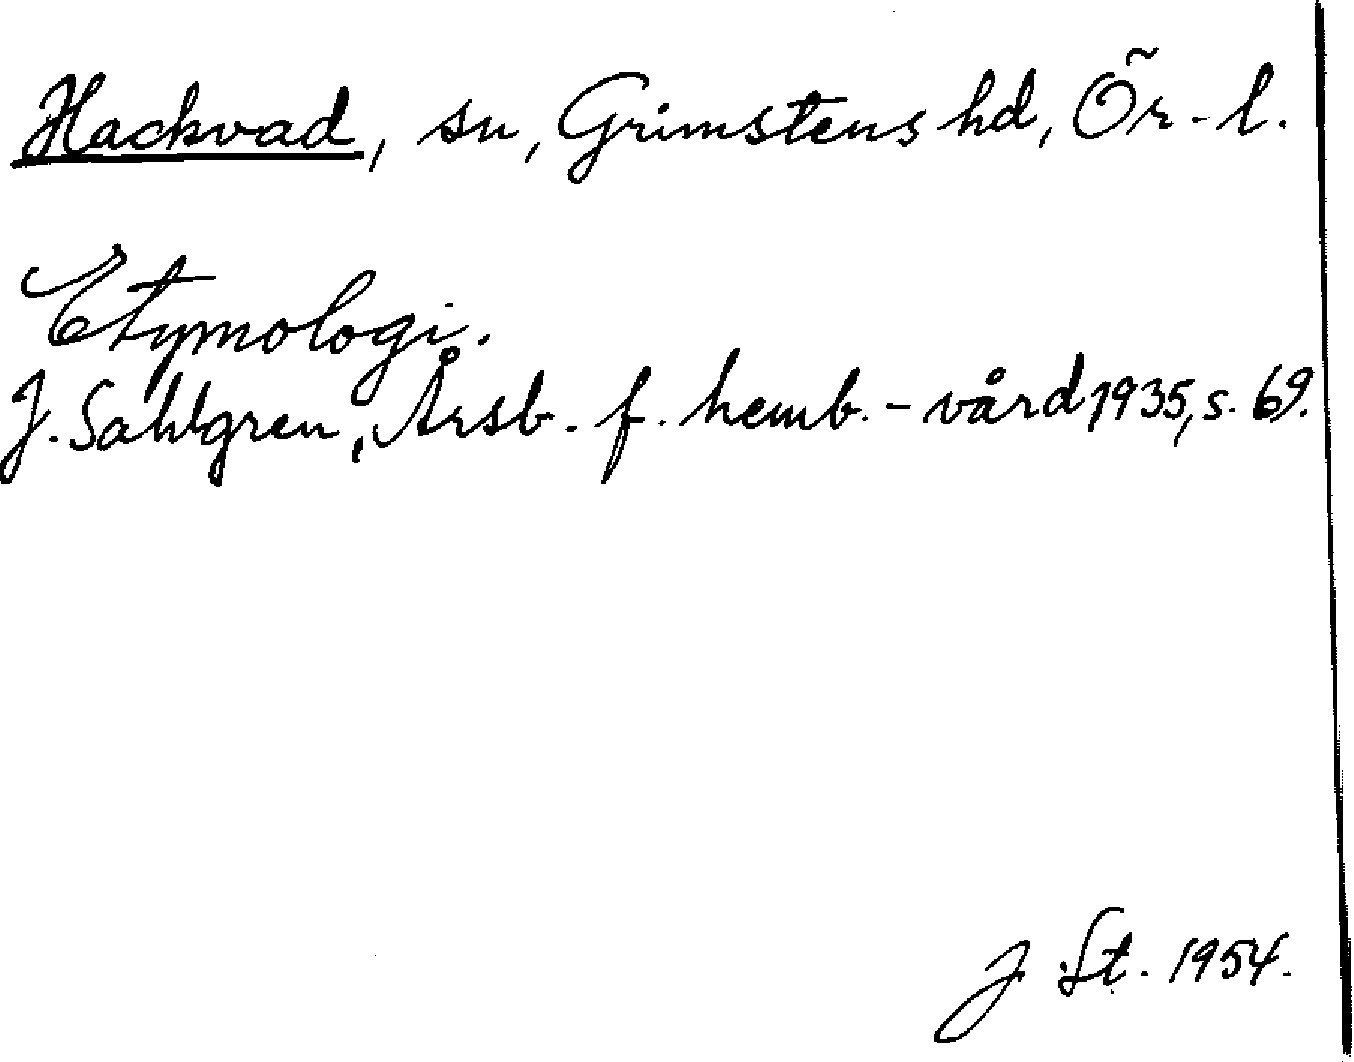 Hackvad, sn, Grimstens hd, Ör-l.
Etymologi.
J. Sahlgren, Årsb. f. hemb.-vård 1935, s. 69.
J. St. 1954.